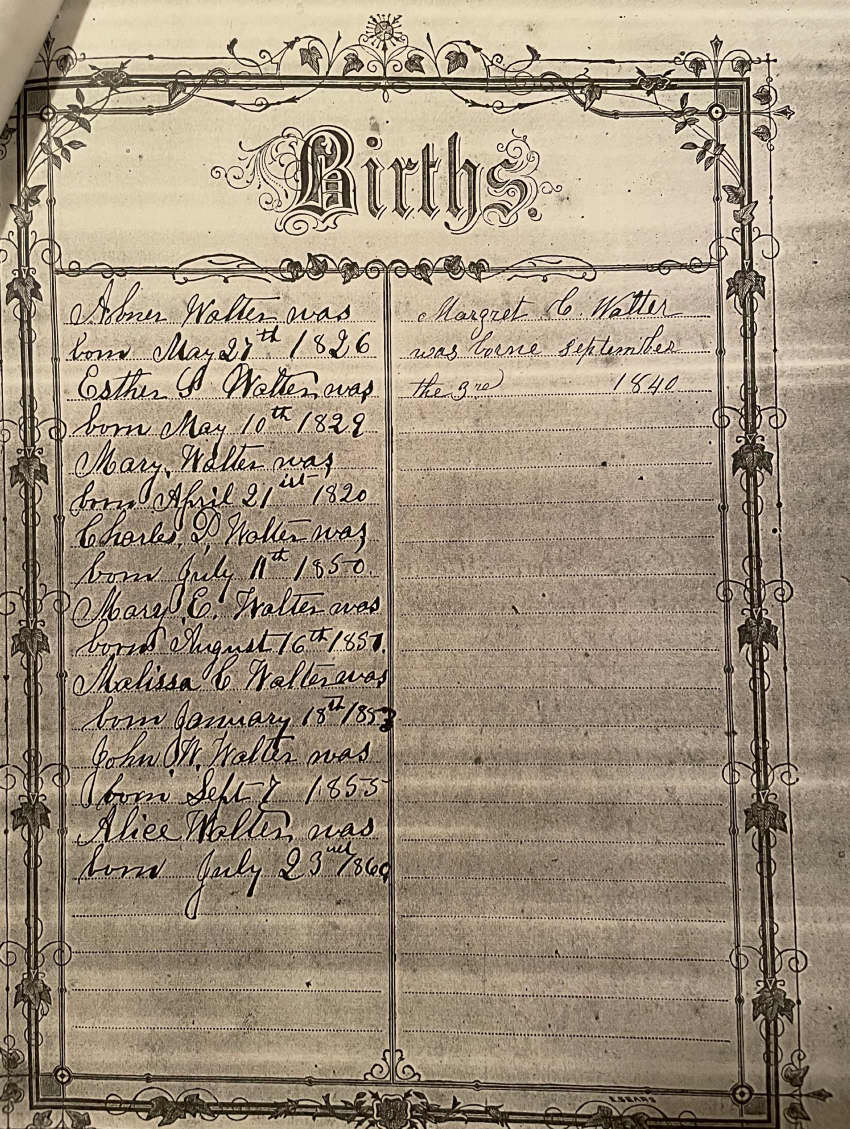 Births.
Abner Walter was
born May 27th 1826
Esther P Walter was
born May 10th 1829
Mary Walter was
born April 21ist 1820
Charles D Walter was
born July 11th 1850
Mary E. Walter was
born August 16th 1851.
Malissa C Walter was
born January 18th 1853
John W. Walter was
born Sept 7 1855
Alice Walter was
born July 23nd 1860
Margret C. Walter
was borne september
the 3rd 1840
E. SEARS